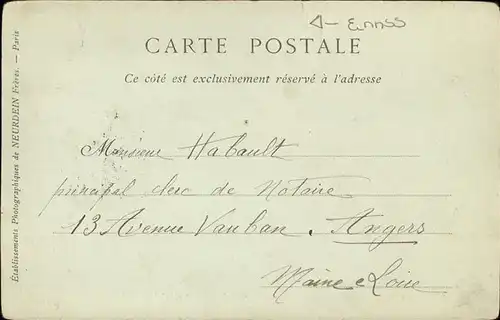 CARTE POSTALE
Ce côté est exclusivement réservé à l'adresse
Monsieur Habault
principal clerc de Notaire
13 Avenue Vauban. Angers
Maine & Loire
Établissements Photographiques de NEURDEIN Frères. — Paris